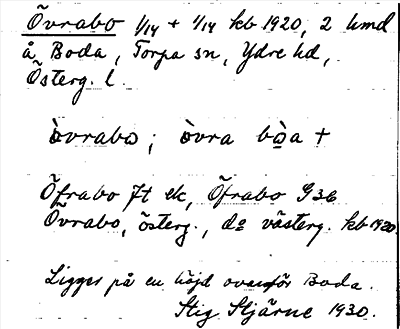 Övrabo 1/14 + 1/14 kb 1920, 2 hmd
å Boda, Torpa sn, Ydre hd,
Österg. l.
òvrabo ; òvra bòa +
Öfrabo Jt ek, Öfrabo G 36
Övrabo, österg., do västerg. kb 1920.
Ligger på en höjd ovanför Boda.
Stig Stjärne 1930.